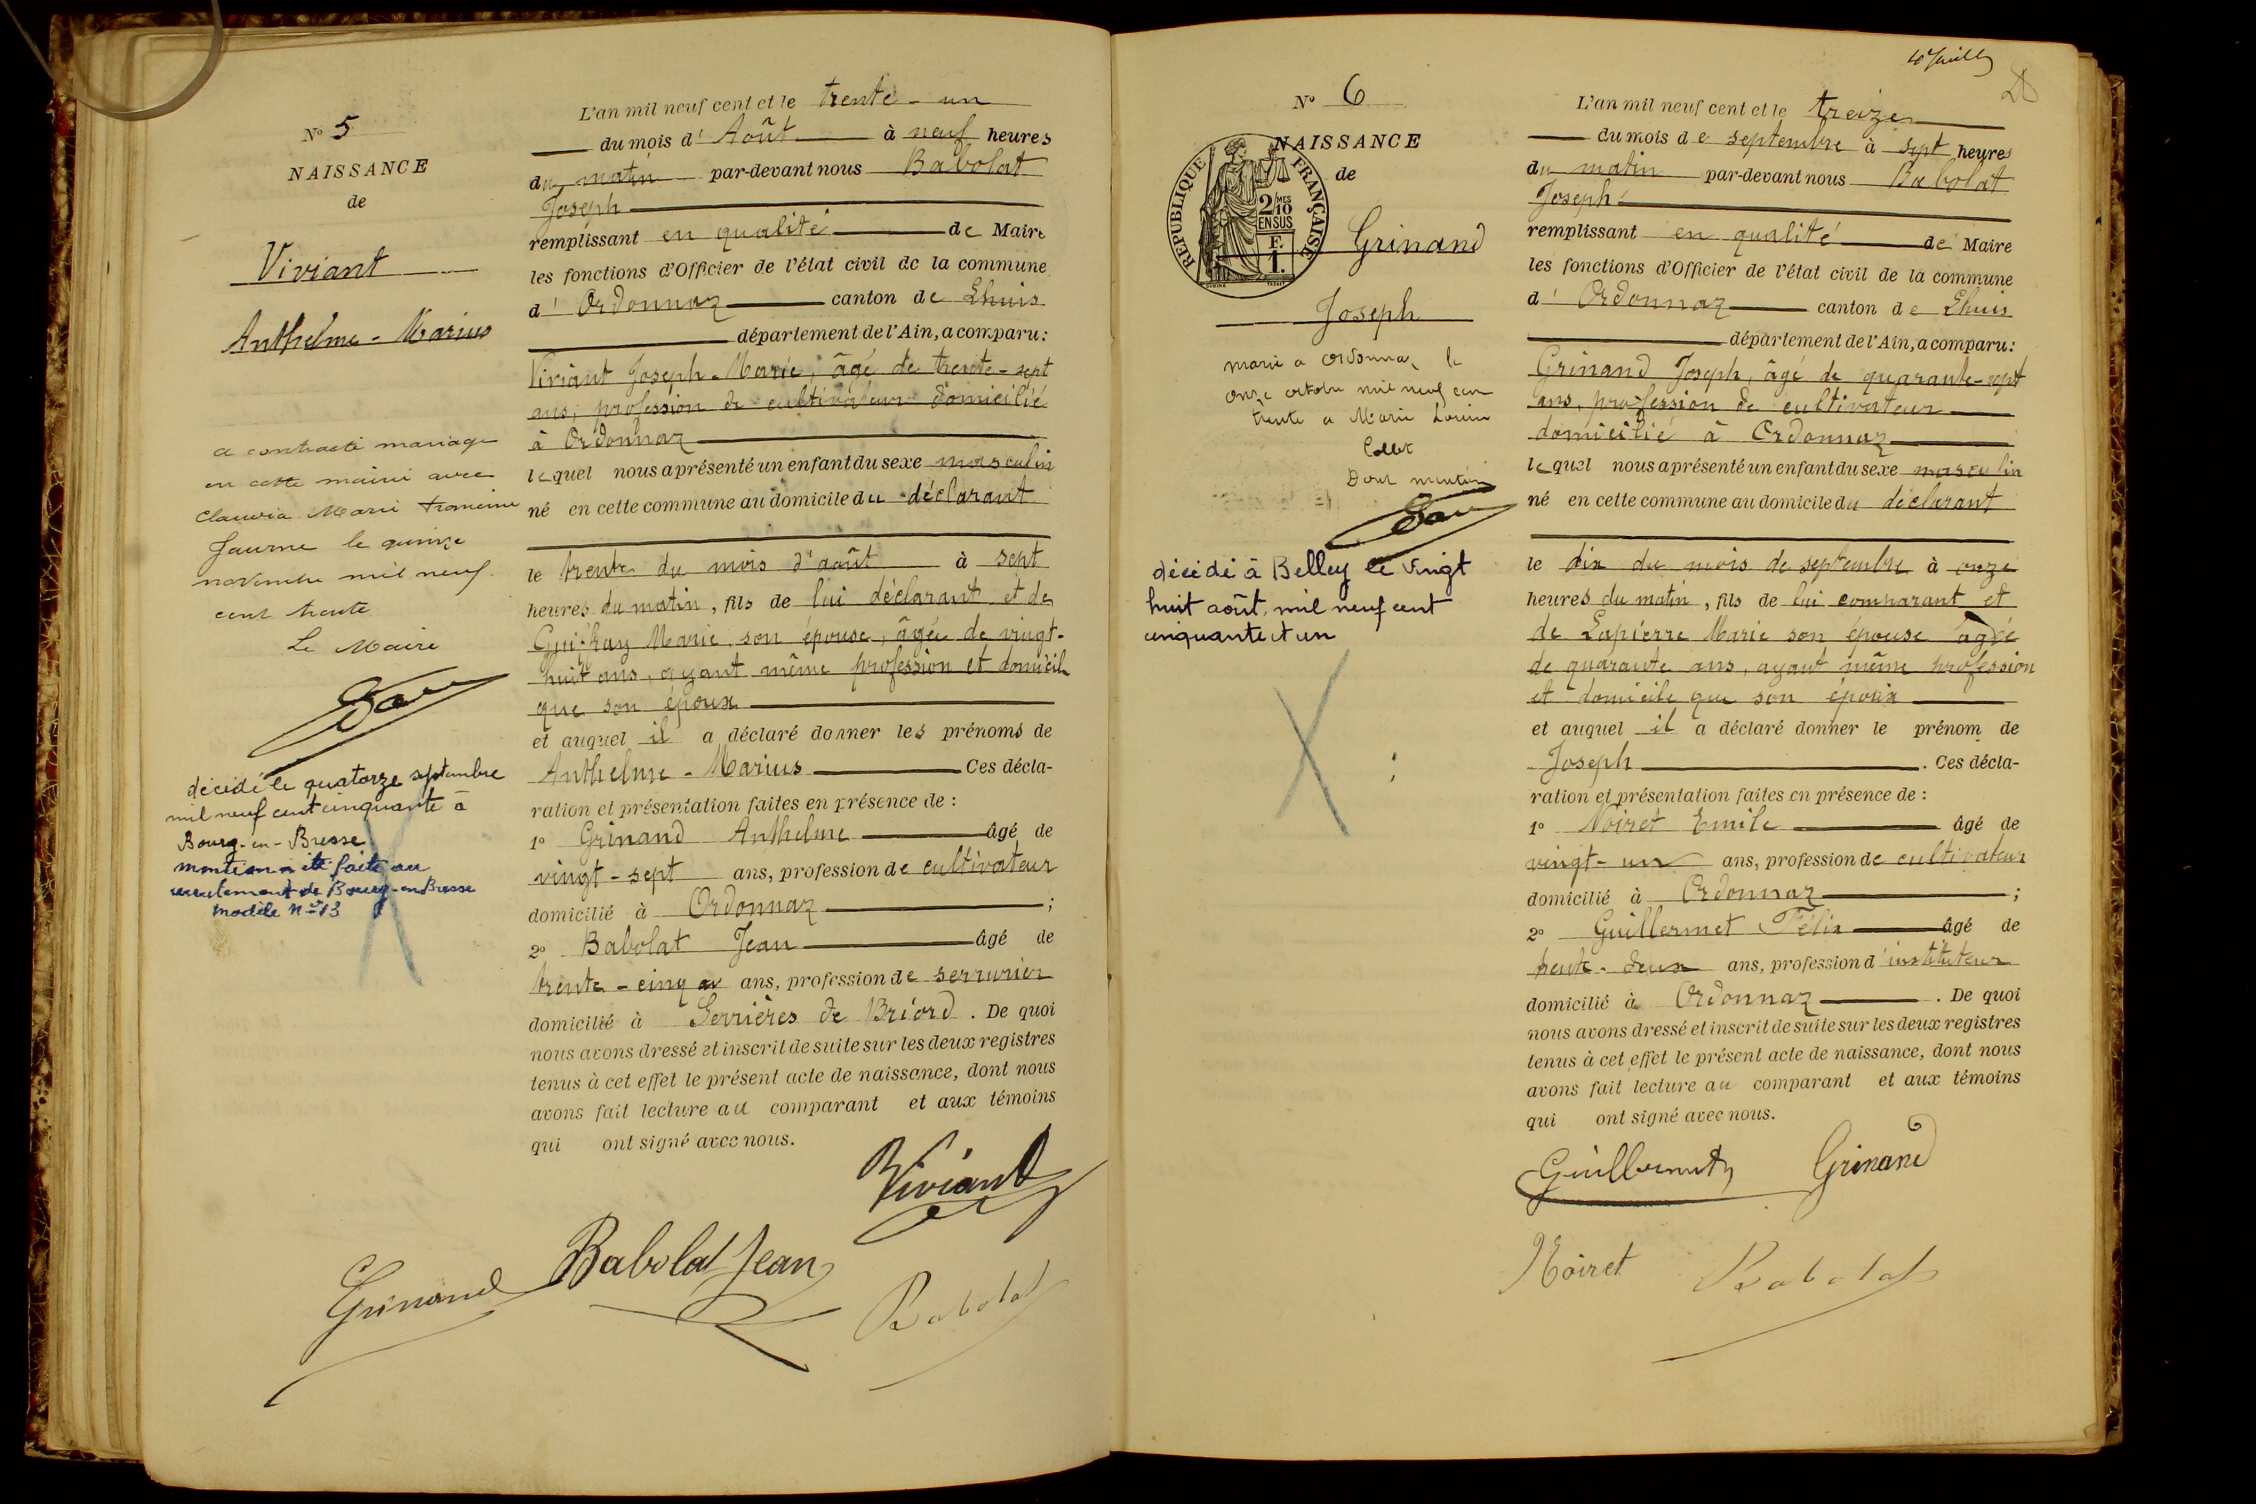 N° 5
NAISSANCE
de
Viviant
Anthelme - Marius
a contracté mariage
en cette mairie avec
Claudia Marie
le quinze
novembre mil neuf
cent trente
Le Maire
décédé le quatorze septembre
mil neuf cent cinquante à
Bourg-en-Bresse
mention a été faite au
recrutement de Bourg-en-Bresse
modèle n° 13
L'an mil neuf cent et le trente - un
du mois d' Août à neuf heures
du matin par-devant nous Babolat
Joseph
remplissant en qualité de Maire
les fonctions d'Officier de l'état civil de la commune
d' Ordonnaz canton de Lhuis
département de l'Ain, a comparu:
Viviant Joseph-Marie, âgé de trente-sept
ans, profession de cultivateur domicilié
à Ordonnaz
lequel nous a présenté un enfant du sexe masculin
né en cette commune au domicile du déclarant
le trente du mois d'août à sept
heures du matin, fils de lui déclarant et de
Marie, son épouse, âgée de vingt-
huit ans, ayant même profession et domicile
que son époux
et auquel il a déclaré donner les prénoms de
Anthelme - Marius Ces décla-
ration et présentation faites en présence de:
1° Grinand Anthelme âgé de
vingt-sept ans, profession de cultivateur
domicilié à Ordonnaz ;
2° Babolat Jean âgé de
trente-cinq ans, profession de serrurier
domicilié à Serrières de Briord. De quoi
nous avons dressé et inscrit de suite sur les deux registres
tenus à cet effet le présent acte de naissance, dont nous
avons fait lecture au comparant et aux témoins
qui ont signé avec nous.
Viviant
Grinand
Babolat Jean
Babolat
N° 6
NAISSANCE
de
REPUBLIQUE FRANÇAISE
2/10 MES
EN SUS
F.
1.
Grinand
Joseph
marié a Ordonnaz le
onze octobre mil neuf cent
trente a Marie
Collet
Dont mention
décédé à Belley le vingt
huit août mil neuf cent
cinquante et un
28
L'an mil neuf cent et le treize
du mois de septembre à sept heures
du matin par-devant nous Babolat
Joseph
remplissant en qualité de Maire
les fonctions d'Officier de l'état civil de la commune
d' Ordonnaz canton de Lhuis
département de l'Ain, a comparu:
Grinand Joseph, âgé de quarante-sept
ans, profession de cultivateur
domicilié à Ordonnaz
lequel nous a présenté un enfant du sexe masculin
né en cette commune au domicile du déclarant
le dix du mois de septembre à onze
heures du matin, fils de lui comparant et
de Lapierre Marie son épouse âgée
de quarante ans, ayant même profession
et domicile que son époux
et auquel il a déclaré donner le prénom de
Joseph . Ces décla-
ration et présentation faites en présence de:
1° Noiret Emile âgé de
vingt-un ans, profession de cultivateur
domicilié à Ordonnaz ;
2° Guillermet Félix âgé de
trente-deux ans, profession d'instituteur
domicilié à Ordonnaz . De quoi
nous avons dressé et inscrit de suite sur les deux registres
tenus à cet effet le présent acte de naissance, dont nous
avons fait lecture au comparant et aux témoins
qui ont signé avec nous.
Guillermet Grinand
Noiret Babolat